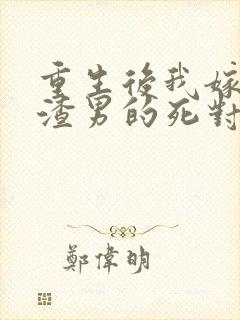 重生後我嫁
渣男的死對
鄭偉明